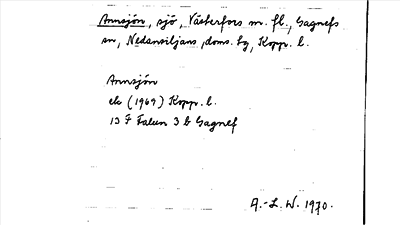 Annsjön, sjö, Västerfors m. fl., Gagnefs
sn, Nedansiljans doms. bg, Kopp. l.
Annsjön
ek (1969) Kopp. l.
13 F Falun 3 b Gagnef
A.-L. W. 1970.